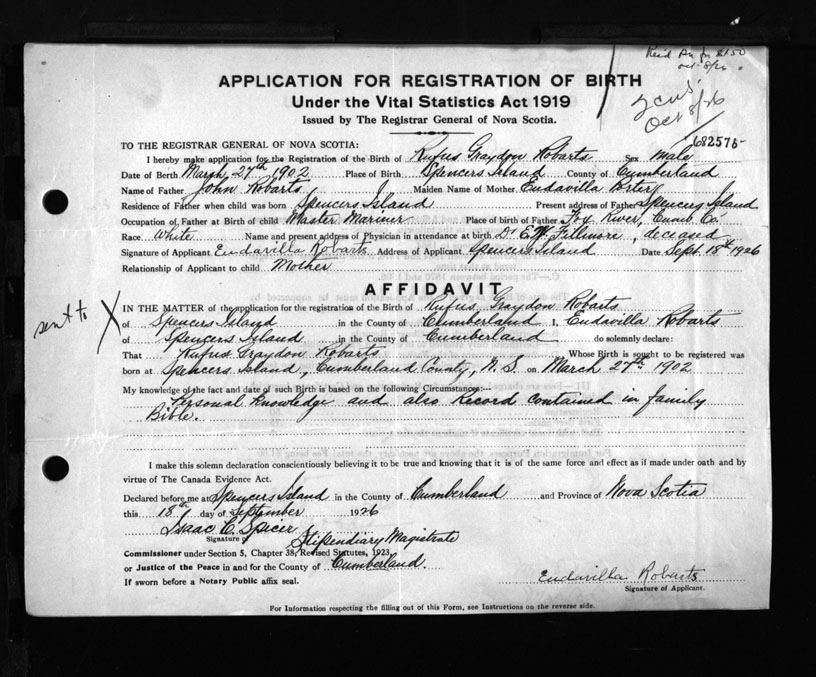 Rec'd $1.50
Oct 8/26
APPLICATION FOR REGISTRATION OF BIRTH
Under the Vital Statistics Act 1919
Issued by The Registrar General of Nova Scotia.
Oct 8/26
682575
TO THE REGISTRAR GENERAL OF NOVA SCOTIA:
I hereby make application for the Registration of the Birth of Rufus Graydon Robarts Sex Male
Date of Birth March 27th 1902 Place of Birth Spencers Island County of Cumberland
Name of Father John Robarts Maiden Name of Mother Eudavilla Porter
Residence of Father when child was born Spencers Island Present address of Father Spencers Island
Occupation of Father at Birth of child Master Mariner Place of birth of Father Fox River, Cumb. Co.
Race White Name and present address of Physician in attendance at birth Dr. E. W. Fillmore, deceased
Signature of Applicant Eudavilla Robarts Address of Applicant Spencers Island Date Sept. 18th 1926
Relationship of Applicant to child Mother
AFFIDAVIT
sent to X
IN THE MATTER of the application for the registration of the Birth of Rufus Graydon Robarts
of Spencers Island in the County of Cumberland I, Eudavilla Robarts
of Spencers Island in the County of Cumberland do solemnly declare:
That Rufus Graydon Robarts Whose Birth is sought to be registered was
born at Spencers Island, Cumberland County, N. S. on March 27th 1902
My knowledge of the fact and date of such Birth is based on the following Circumstances:—
Personal knowledge and also Record contained in family
Bible.
I make this solemn declaration conscientiously believing it to be true and knowing that it is of the same force and effect as if made under oath and by
virtue of The Canada Evidence Act.
Declared before me at Spencers Island in the County of Cumberland and Province of Nova Scotia
this 18th day of September 1926
Isaac C. Spicer
Signature of Stipendiary Magistrate
Commissioner under Section 5, Chapter 38, Revised Statutes, 1923,
or Justice of the Peace in and for the County of Cumberland.
If sworn before a Notary Public affix seal.
Eudavilla Robarts
Signature of Applicant.
For Information respecting the filling out of this Form, see Instructions on the reverse side.